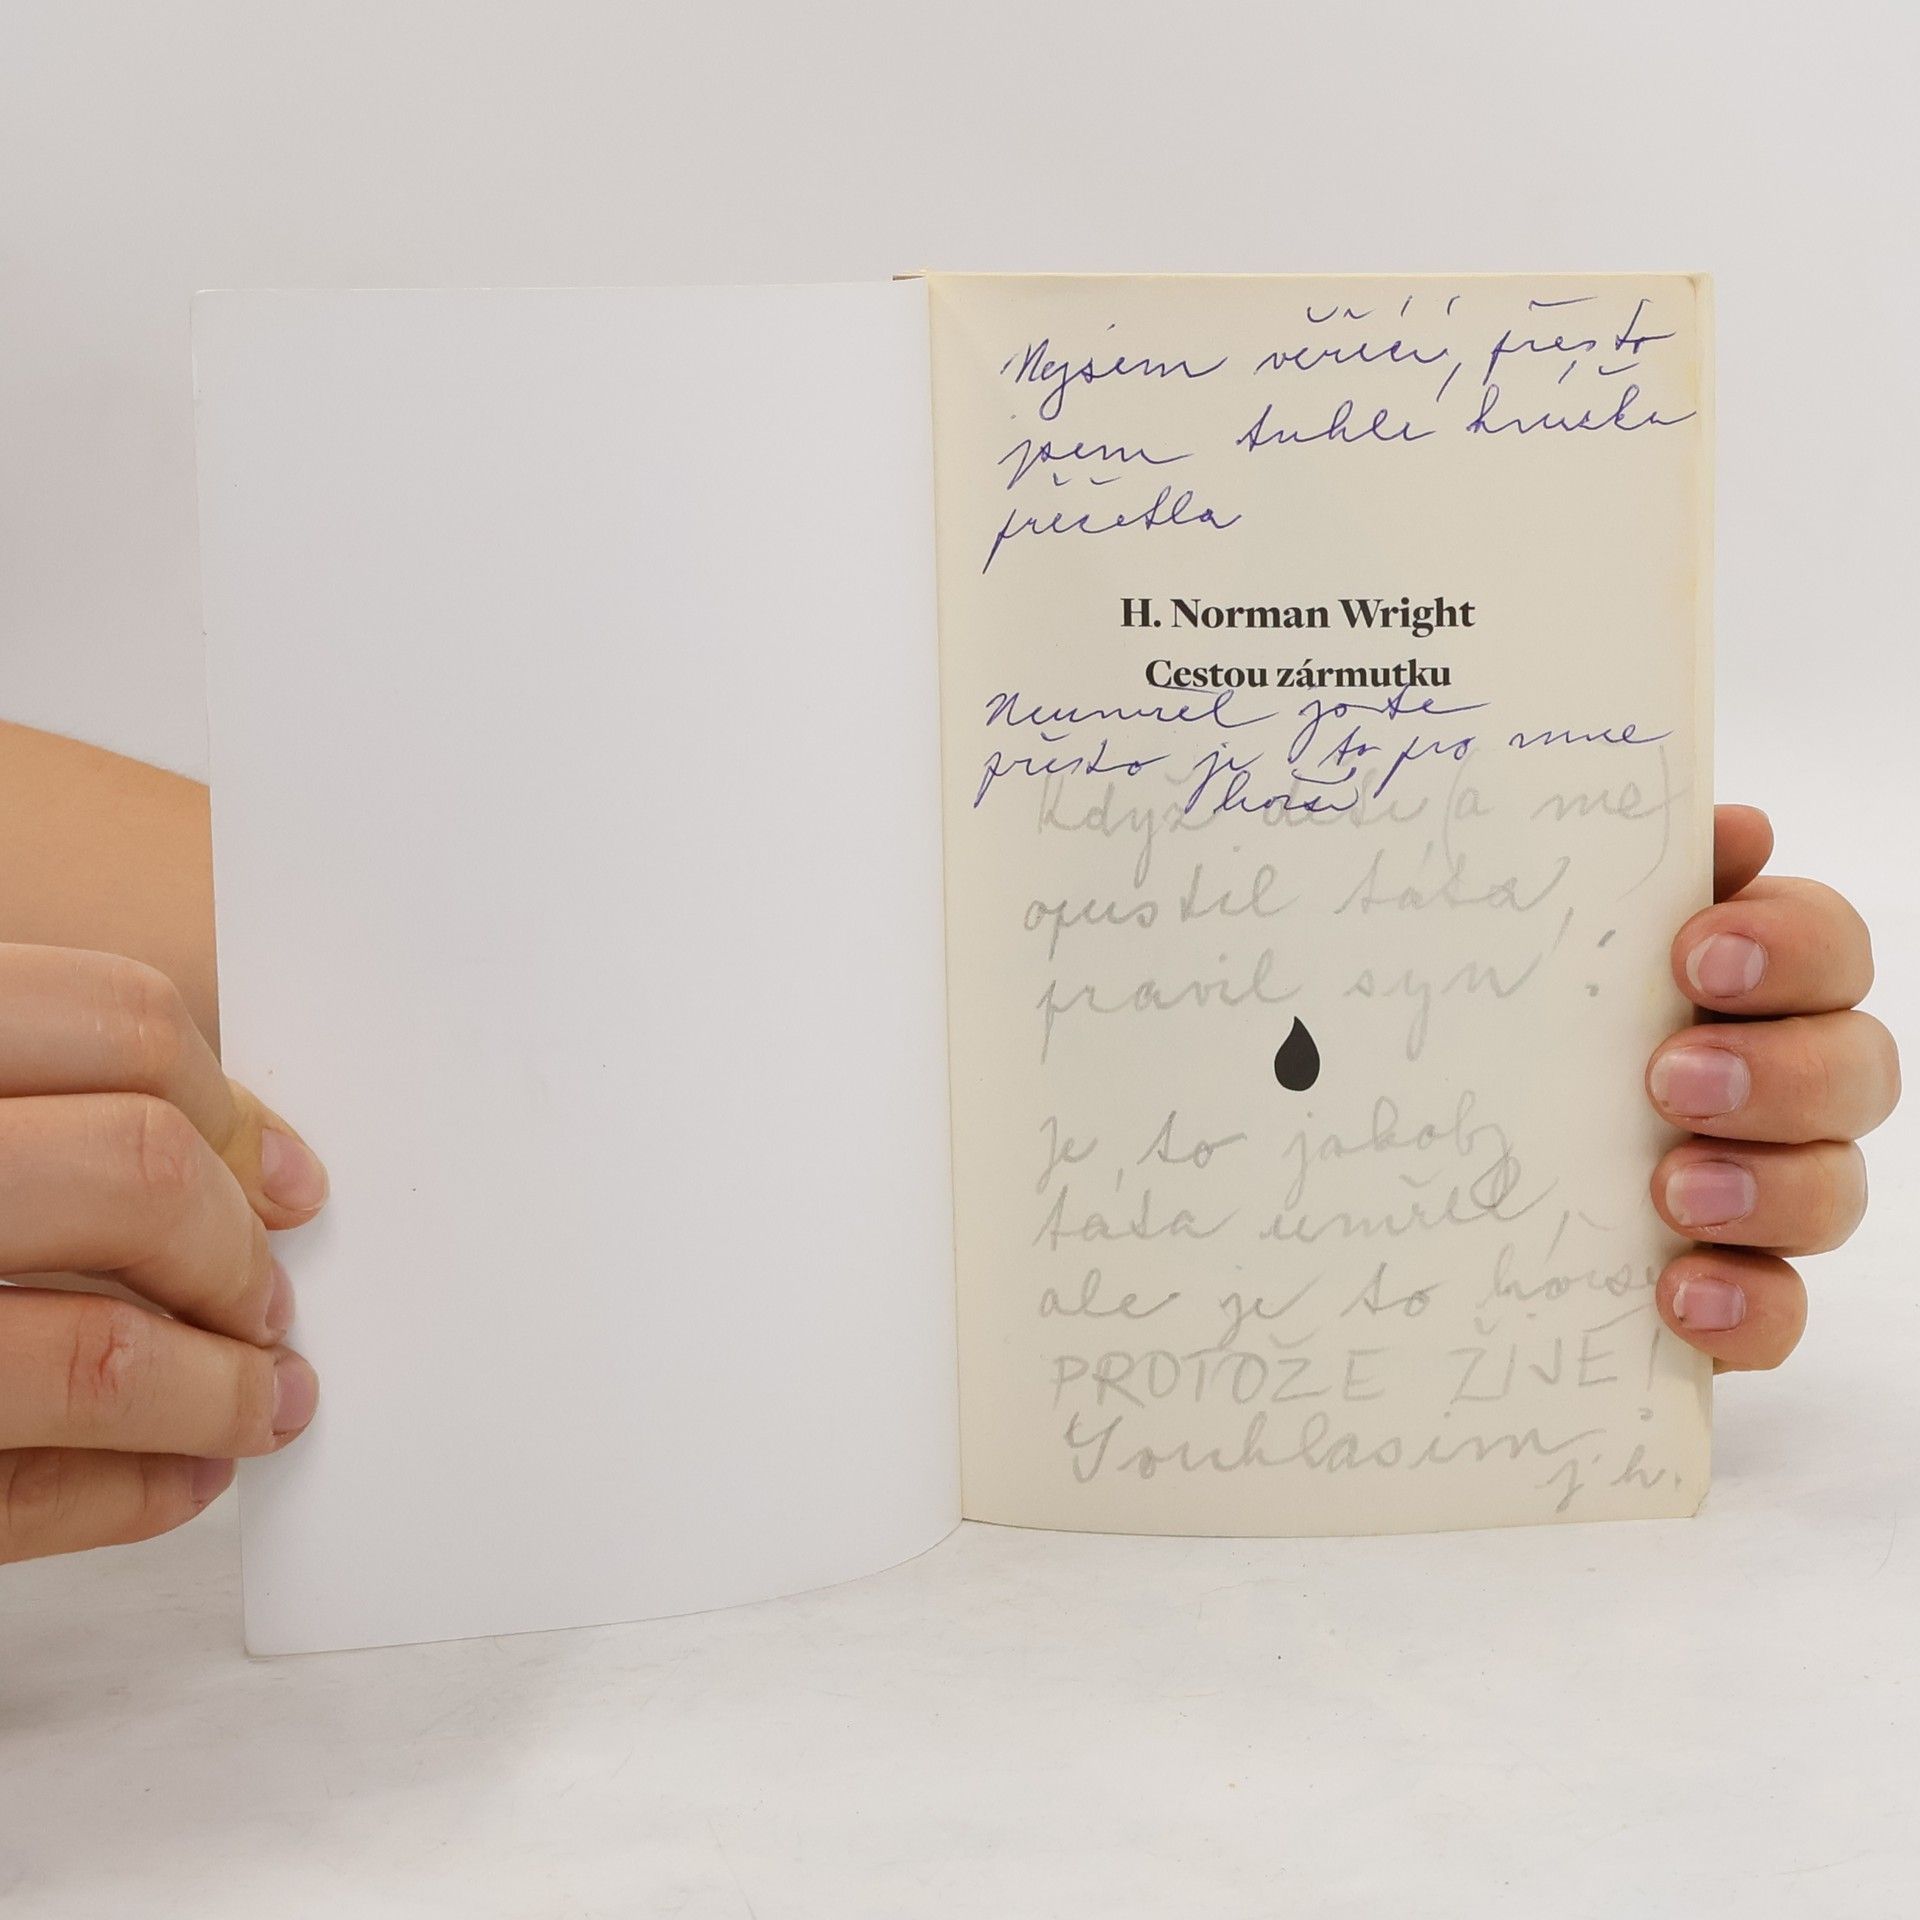 Nejsem věřící, přesto
jsem tuhle knížku
přečetla
H. Norman Wright
Cestou zármutku
Neumřel
přesto je to pro mne
horší
Když děti (a mě)
opustil táta,
pravil syn:
Je to jakoby
táta umřel,
ale je to horší
PROTOŽE ŽIJE!
Souhlasím
j. h.